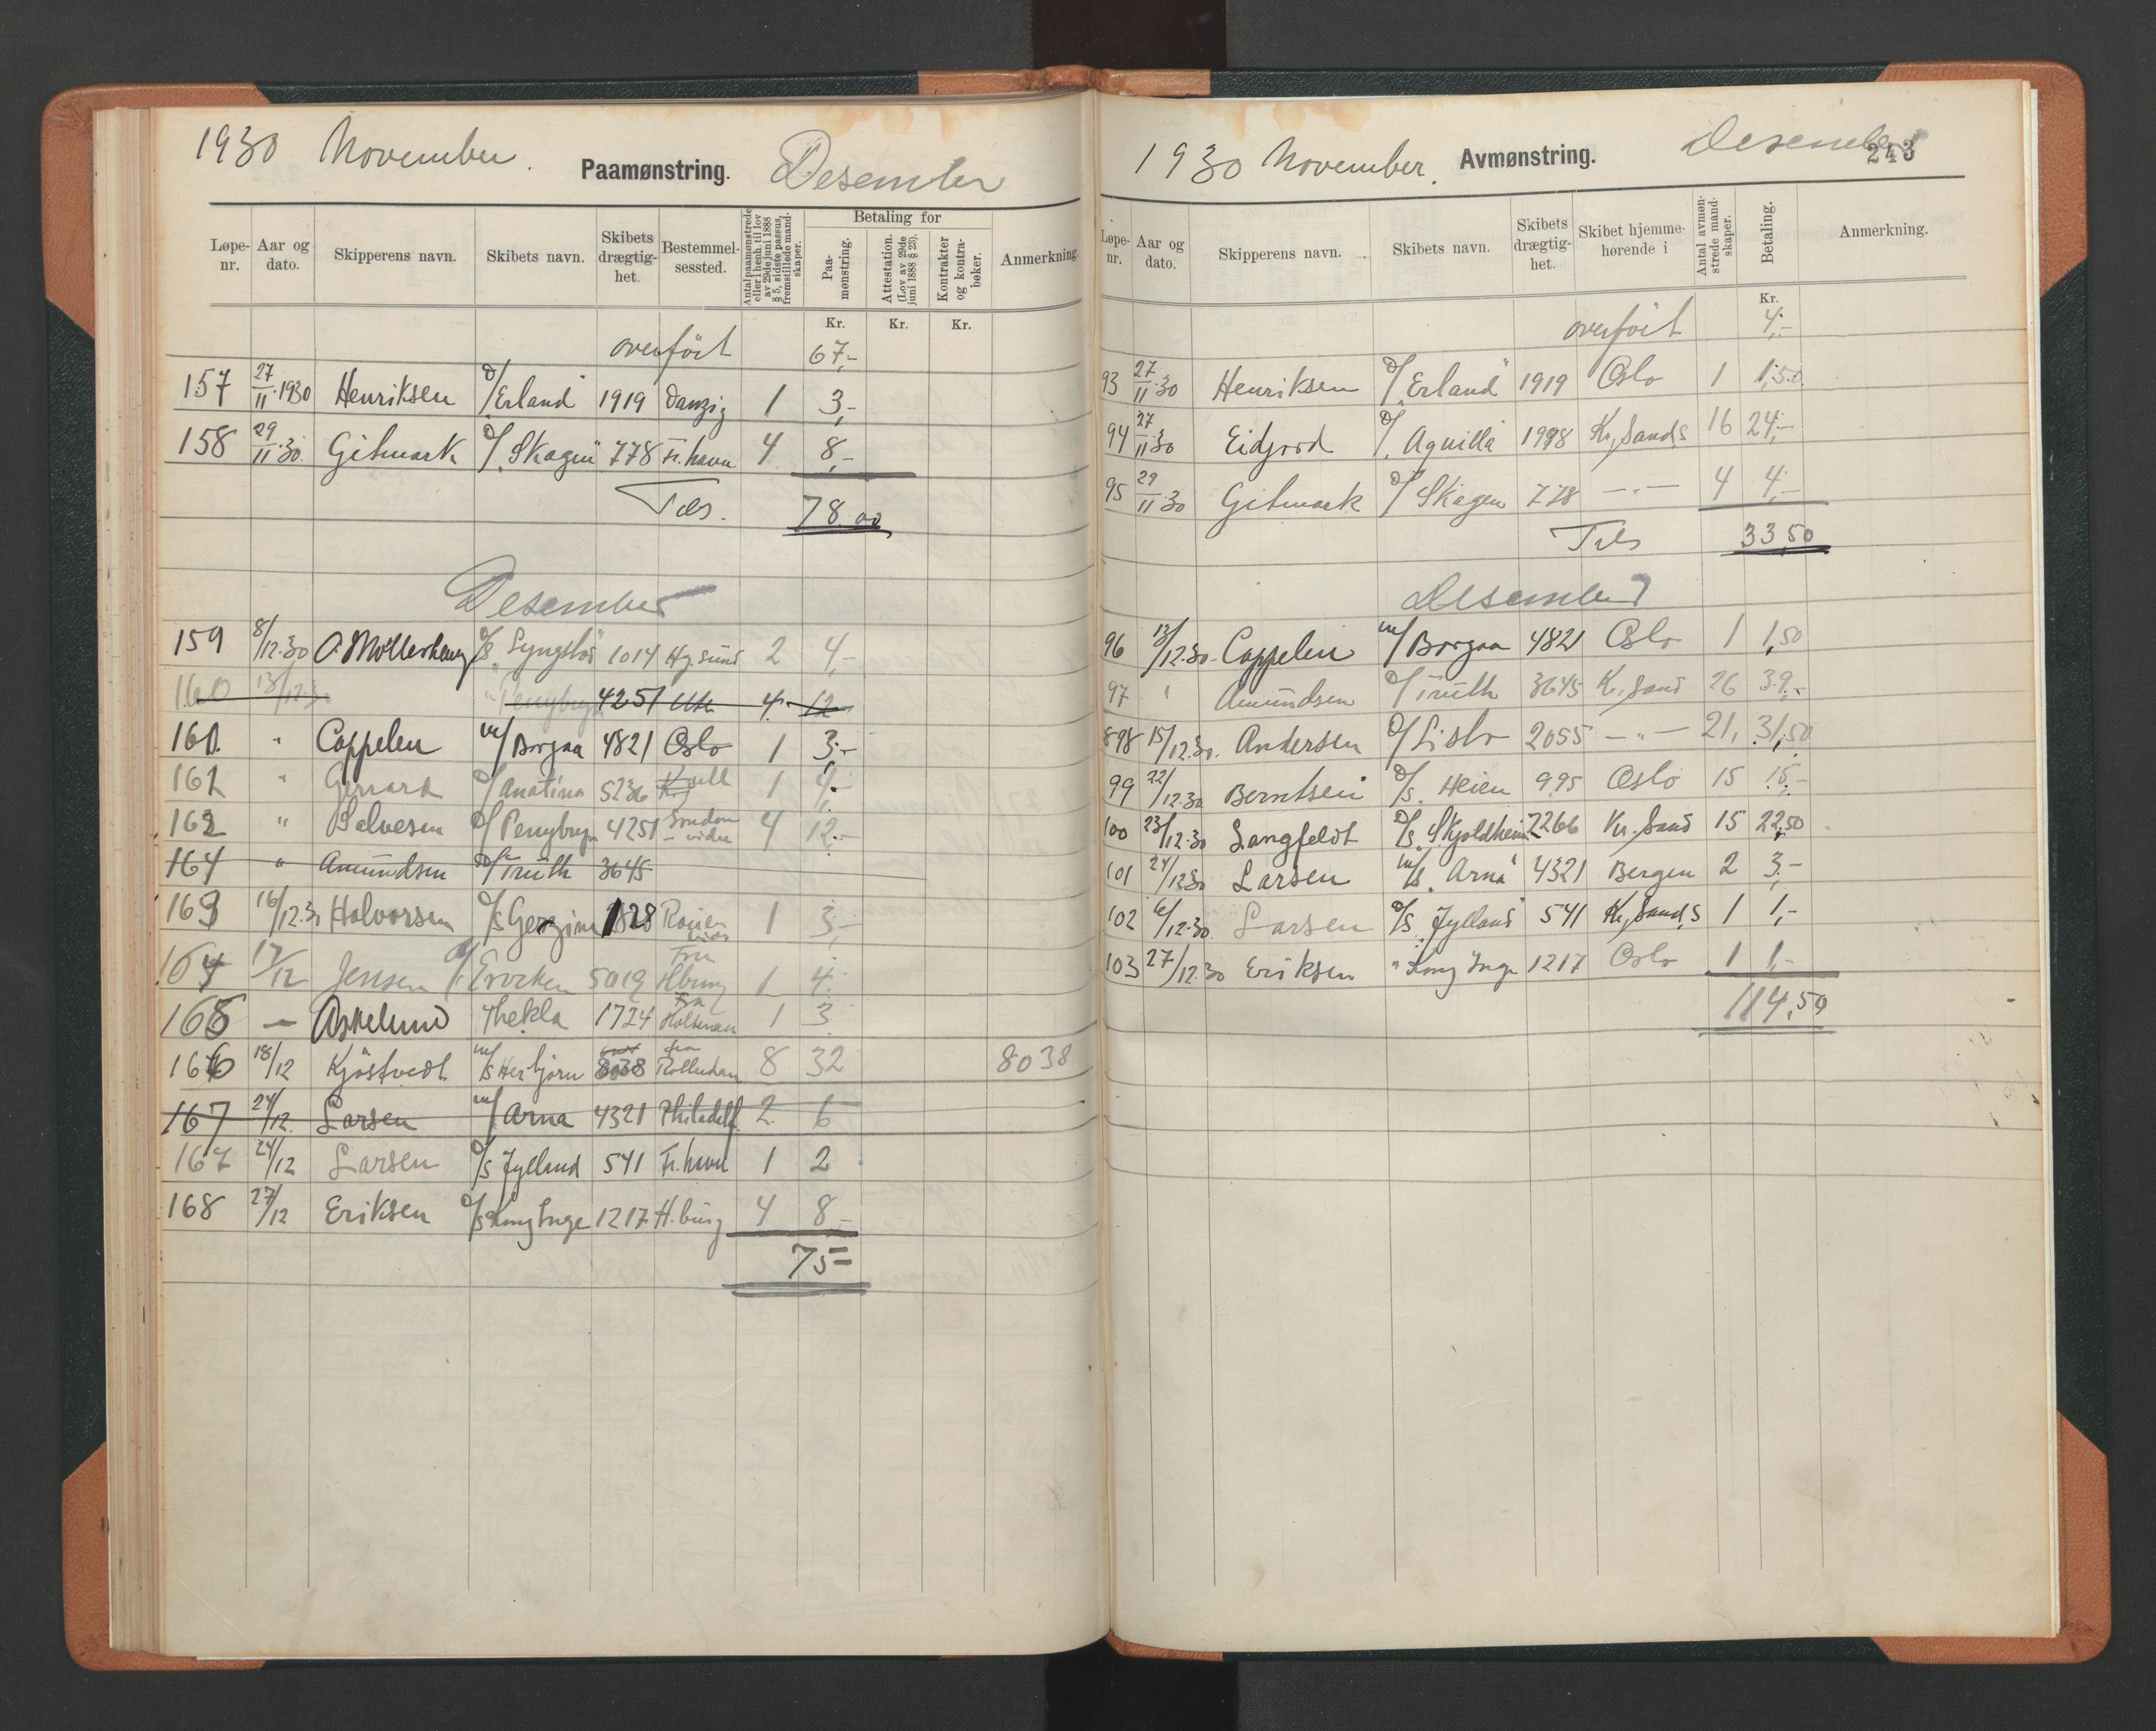 1930 November. Paamønstring. Desember
Løpe-nr. Aar og dato. Skipperens navn. Skibets navn. Skibets drægtig-het. Bestemmel-sessted. Antal paamønstrede eller i henh. til lov av 29de juni 1888 § 5, sidste passus, fremstillede mand-skaper. Betaling for Paa-mønstring. Attestation. (Lov av 29de juni 1888 § 23). Kontrakter og kontra-bøker. Anmerkning.
Kr. Kr. Kr.
overført 67,-
157 27/11.1930 Henriksen D/ "Erland" 1919 Danzig 1 3,-
158 29/11.30. Gitmark D/ "Skagen" 778 Fr.havn 4 8,-
Tils. 78.00
Desember
159 8/12.30 D/S "Lyngstad" 1014 Hg.sund 2 4,-
160 13/12.30 " Penybryn 4251 4 12
160. " Coppelen m/ Borgaa 4821 Oslo 1 3,-
161 " D/ Anatina 5236 Hull 1 4,-
162 " Salvesen D/ Penybryn 4251 London - videre 4 12.-
164 " Amundsen D/ Truth 3645
163 16/12.30 Halvorsen D/S 1828 Rouen 1 3,-
164 17/12 Jensen D/ 5019 Fra Hburg 1 4.
165 - Askelund Thekla 1724 Fra Holtenau 1 3
166 18/12 Kjöstvedt m/s Herbjørn 8038 fra Rotterdam 8 32 8038
167 24/12. Larsen m/ Arna 4321 Philadelf. 2 6
167 24/12 Larsen D/S Jylland 541 Fr.havn 1 2
168 27/12 Eriksen D/S Kong Inge 1217 H.burg 4 8-
75=
1930 November. Avmønstring. Desember 243
Løpe-nr. Aar og dato. Skipperens navn. Skibets navn. Skibets drægtig-het. Skibet hjemme-hørende i Antal avmøn-strede mand-skaper. Betaling. Anmerkning.
Kr.
overført 4,-
93 27/11.30 Henriksen D/ "Erland" 1919 Oslo 1 1,50
94 27/11.30 Eidjord D/ "Aquilla" 1998 Kr.Sand.S 16 24,-
95 29/11.30 Gitmark D/ Skagen 778 -"- 4 4,-
Tils 33,50
Desember
96 13/12.30. Coppelen m/ Borgaa 4821 Oslo 1 1,50
97 " Amundsen D/ Truth 3645 Kr.Sand 26 39,-
98 15/12.30. Andersen D/ Lisbo 2055 -"- 21, 31,50
99 22/12.30 Berntsen D/S. Heien 995 Oslo 15 15.-
100 23/12.30 Langfeldt D/S. Skjoldheim 2266 Kr.Sand 15 22,50
101 24/12.30 Larsen m/s "Arna" 4321 Bergen 2 3,-
102 6/12.30 Larsen D/S "Jylland" 541 Kr.Sand.S 1 1,-
103 27/12.30 Eriksen " Kong Inge 1217 Oslo 1 1,-
114,50